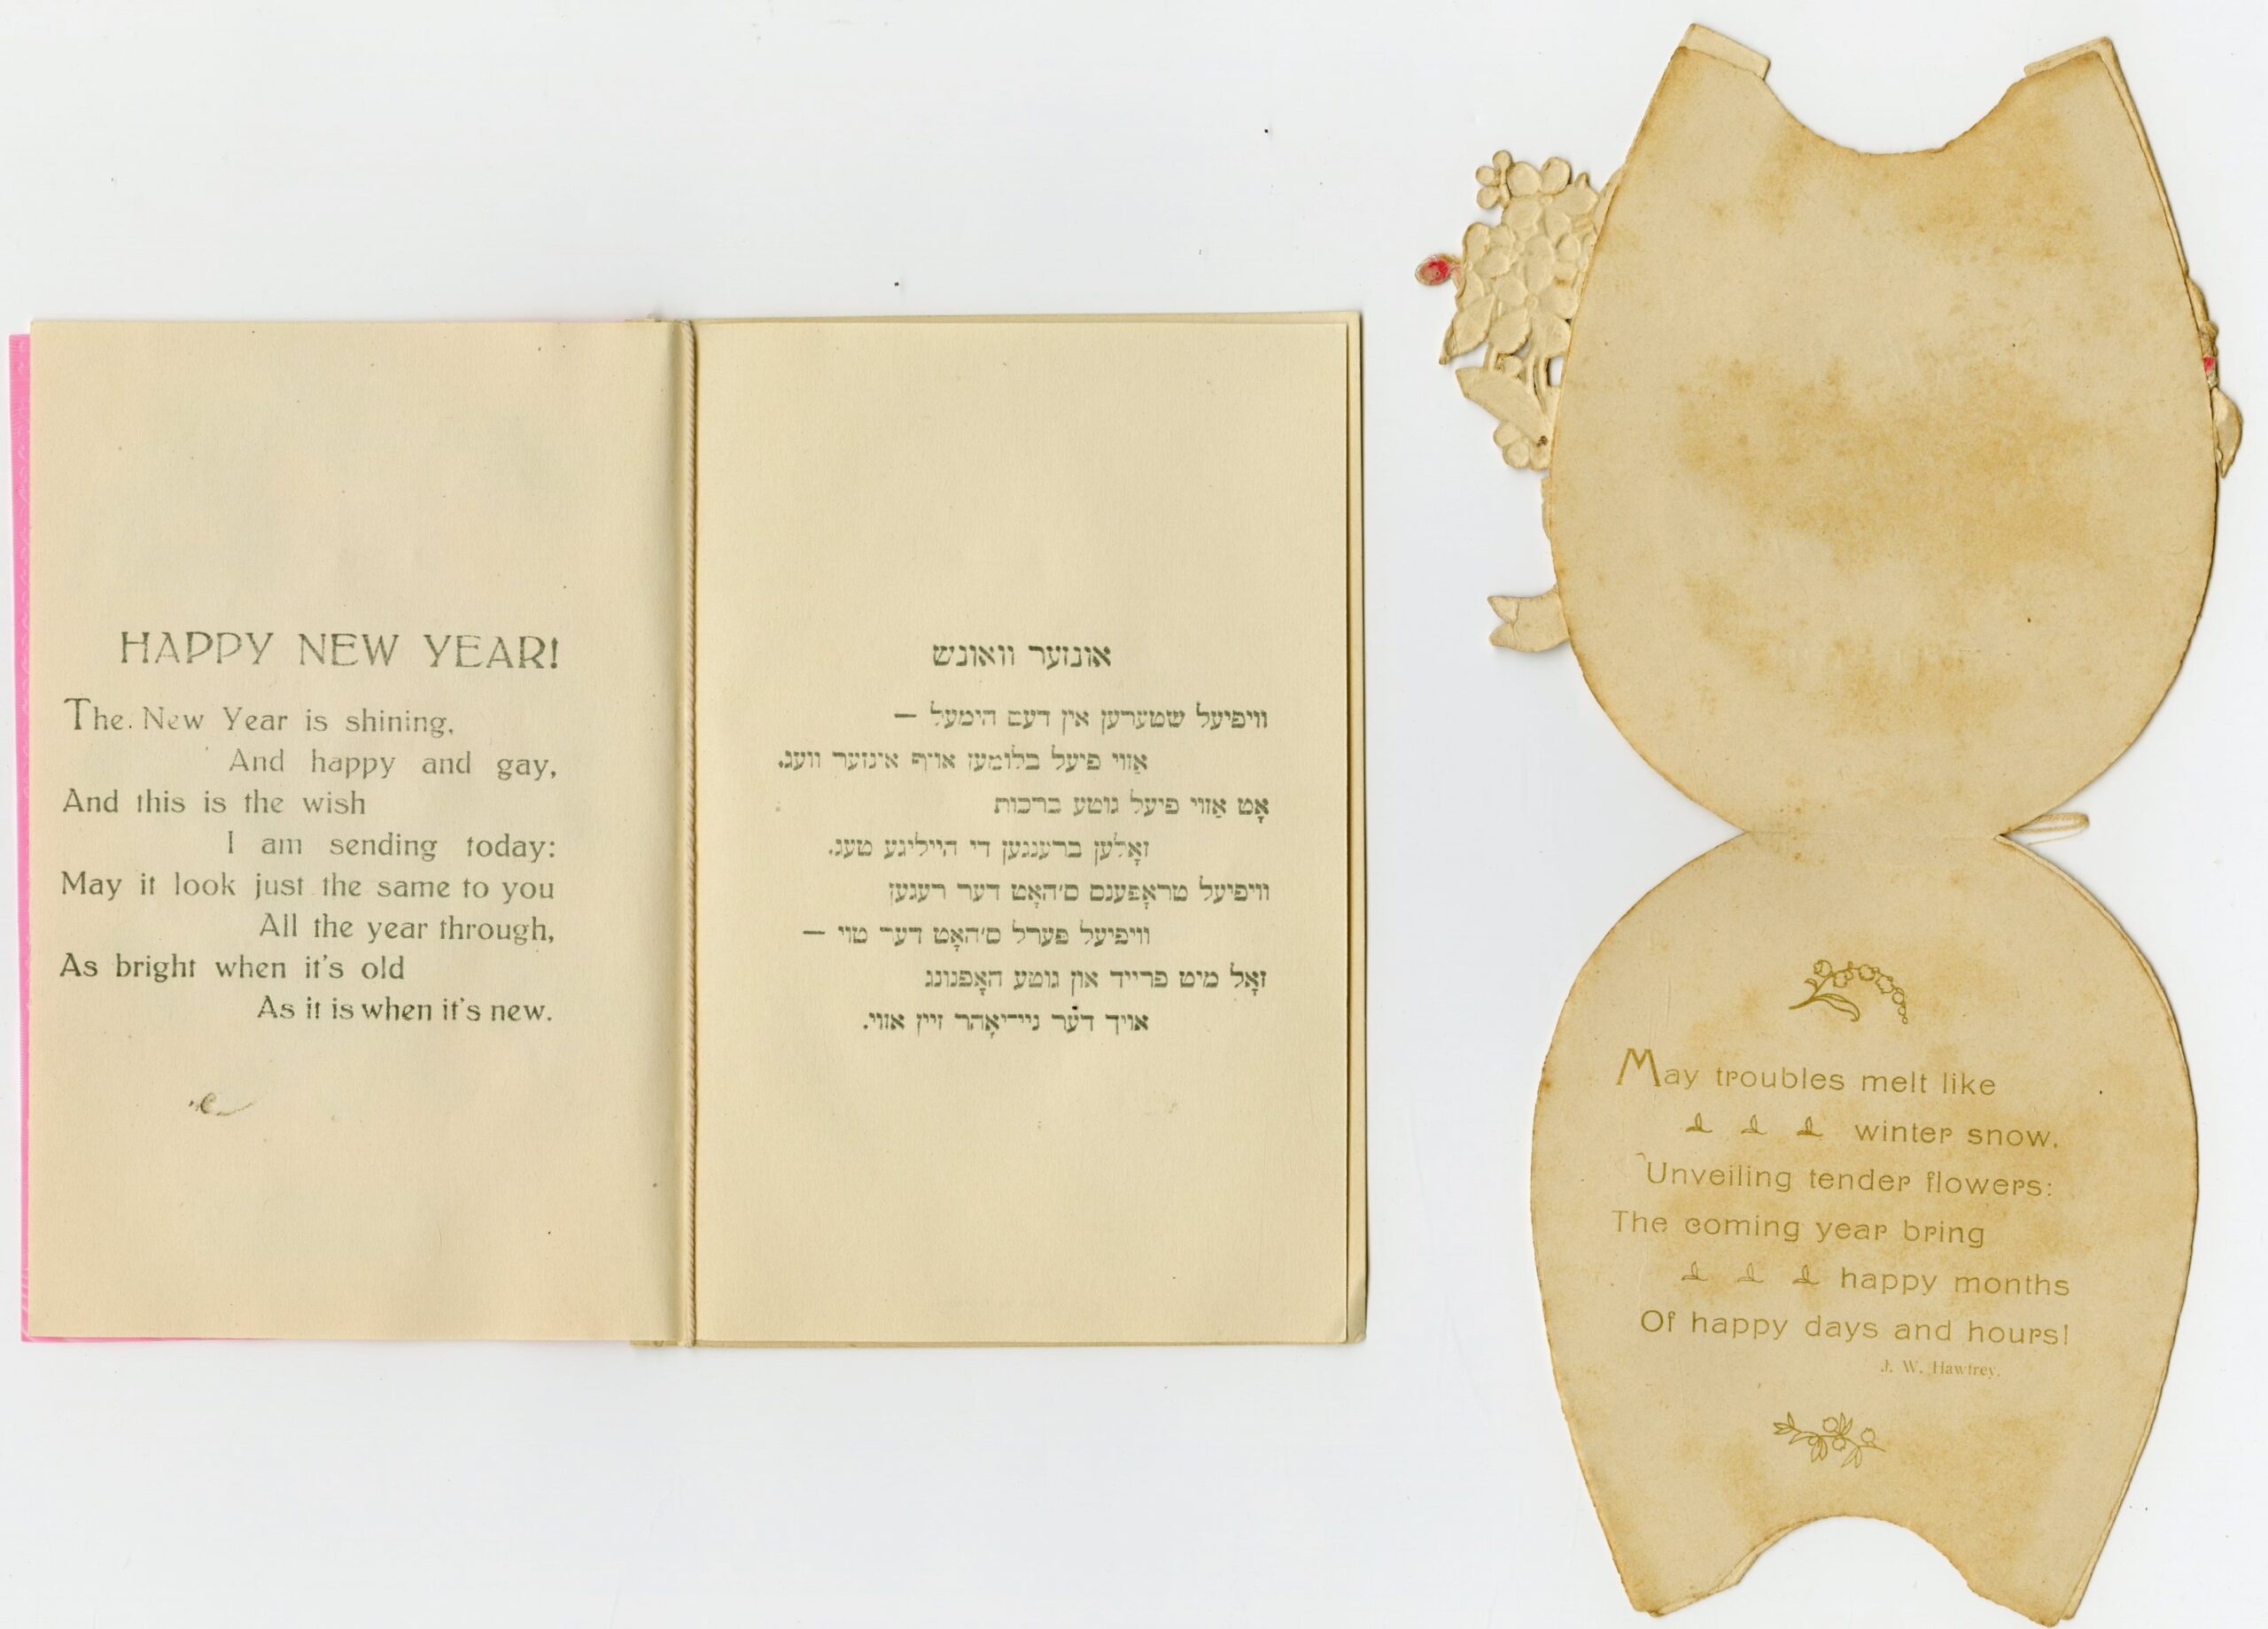 HAPPY NEW YEAR!
The New Year is shining,
And happy and gay,
And this is the wish
I am sending today:
May it look just the same to you
All the year through,
As bright when it's old
As it is when it's new.
אונזער וואונש
וויפיעל שטערען אין דעם הימעל —
אַזוי פיעל בלומען אויף אונזער וועג.
אָט אַזוי פיעל גוטע ברכות
זאָלען ברענגען די הייליגע טעג.
וויפיעל טראָפּענס ס'האָט דער רעגען
וויפיעל פּערל ס'האָט דער טוי —
זאָל מיט פרייד און גוטע האָפנונג
אויך דער ניי־יאָהר זיין אזוי.
May troubles melt like
winter snow,
Unveiling tender flowers:
The coming year bring
happy months
Of happy days and hours!
J. W. Hawtrey.